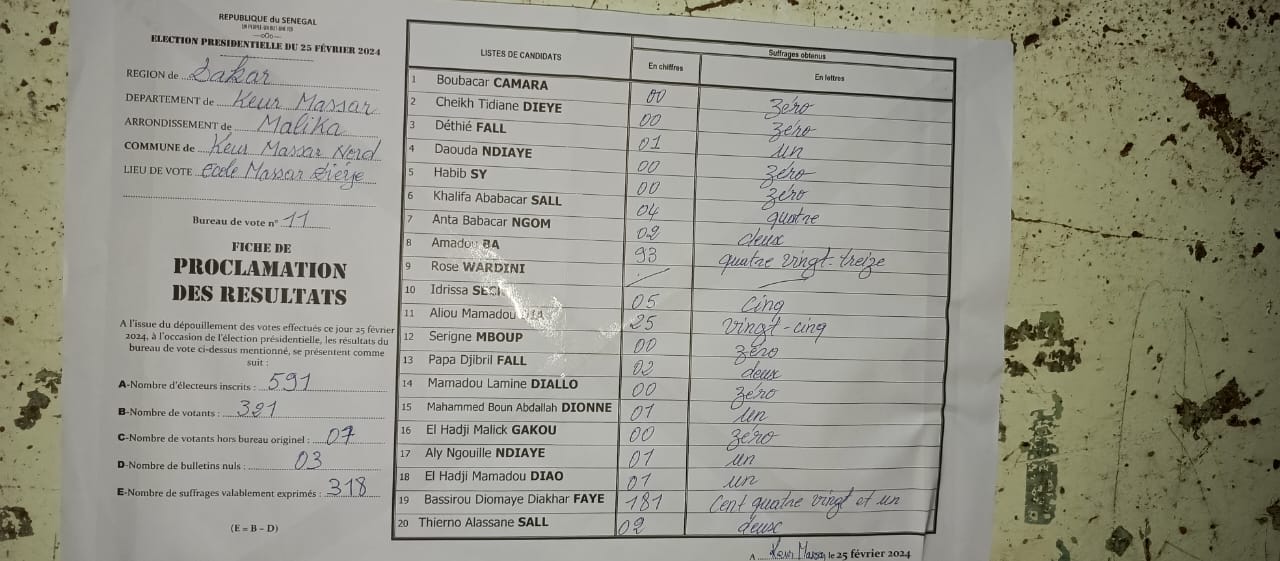 REPUBLIQUE du SENEGAL
UN PEUPLE-UN BUT-UNE FOI
—oOo—
ELECTION PRESIDENTIELLE DU 25 FÉVRIER 2024
REGION de Dakar
DEPARTEMENT de Keur Massar
ARRONDISSEMENT de Malika
COMMUNE de Keur Massar Nord
LIEU DE VOTE école Massar Dièye
Bureau de vote n° 11
FICHE DE
PROCLAMATION
DES RESULTATS
A l'issue du dépouillement des votes effectués ce jour 25 février
2024, à l'occasion de l'élection présidentielle, les résultats du
bureau de vote ci-dessus mentionné, se présentent comme
suit :
A-Nombre d'électeurs inscrits : 591
B-Nombre de votants : 321
C-Nombre de votants hors bureau originel : 07
D-Nombre de bulletins nuls : 03
E-Nombre de suffrages valablement exprimés : 318
(E = B – D)
LISTES DE CANDIDATS Suffrages obtenus
En chiffres En lettres
1 Boubacar CAMARA 00 zéro
2 Cheikh Tidiane DIEYE 00 zéro
3 Déthié FALL 01 un
4 Daouda NDIAYE 00 zéro
5 Habib SY 00 zéro
6 Khalifa Ababacar SALL 04 quatre
7 Anta Babacar NGOM 02 deux
8 Amadou BA 93 quatre vingt-treize
9 Rose WARDINI
10 Idrissa SECK 05 cinq
11 Aliou Mamadou DIA 25 vingt-cinq
12 Serigne MBOUP 00 zéro
13 Papa Djibril FALL 02 deux
14 Mamadou Lamine DIALLO 00 zéro
15 Mahammed Boun Abdallah DIONNE 01 un
16 El Hadji Malick GAKOU 00 zéro
17 Aly Ngouille NDIAYE 01 un
18 El Hadji Mamadou DIAO 01 un
19 Bassirou Diomaye Diakhar FAYE 181 Cent quatre vingt et un
20 Thierno Alassane SALL 02 deux
A Keur Massar, le 25 février 2024